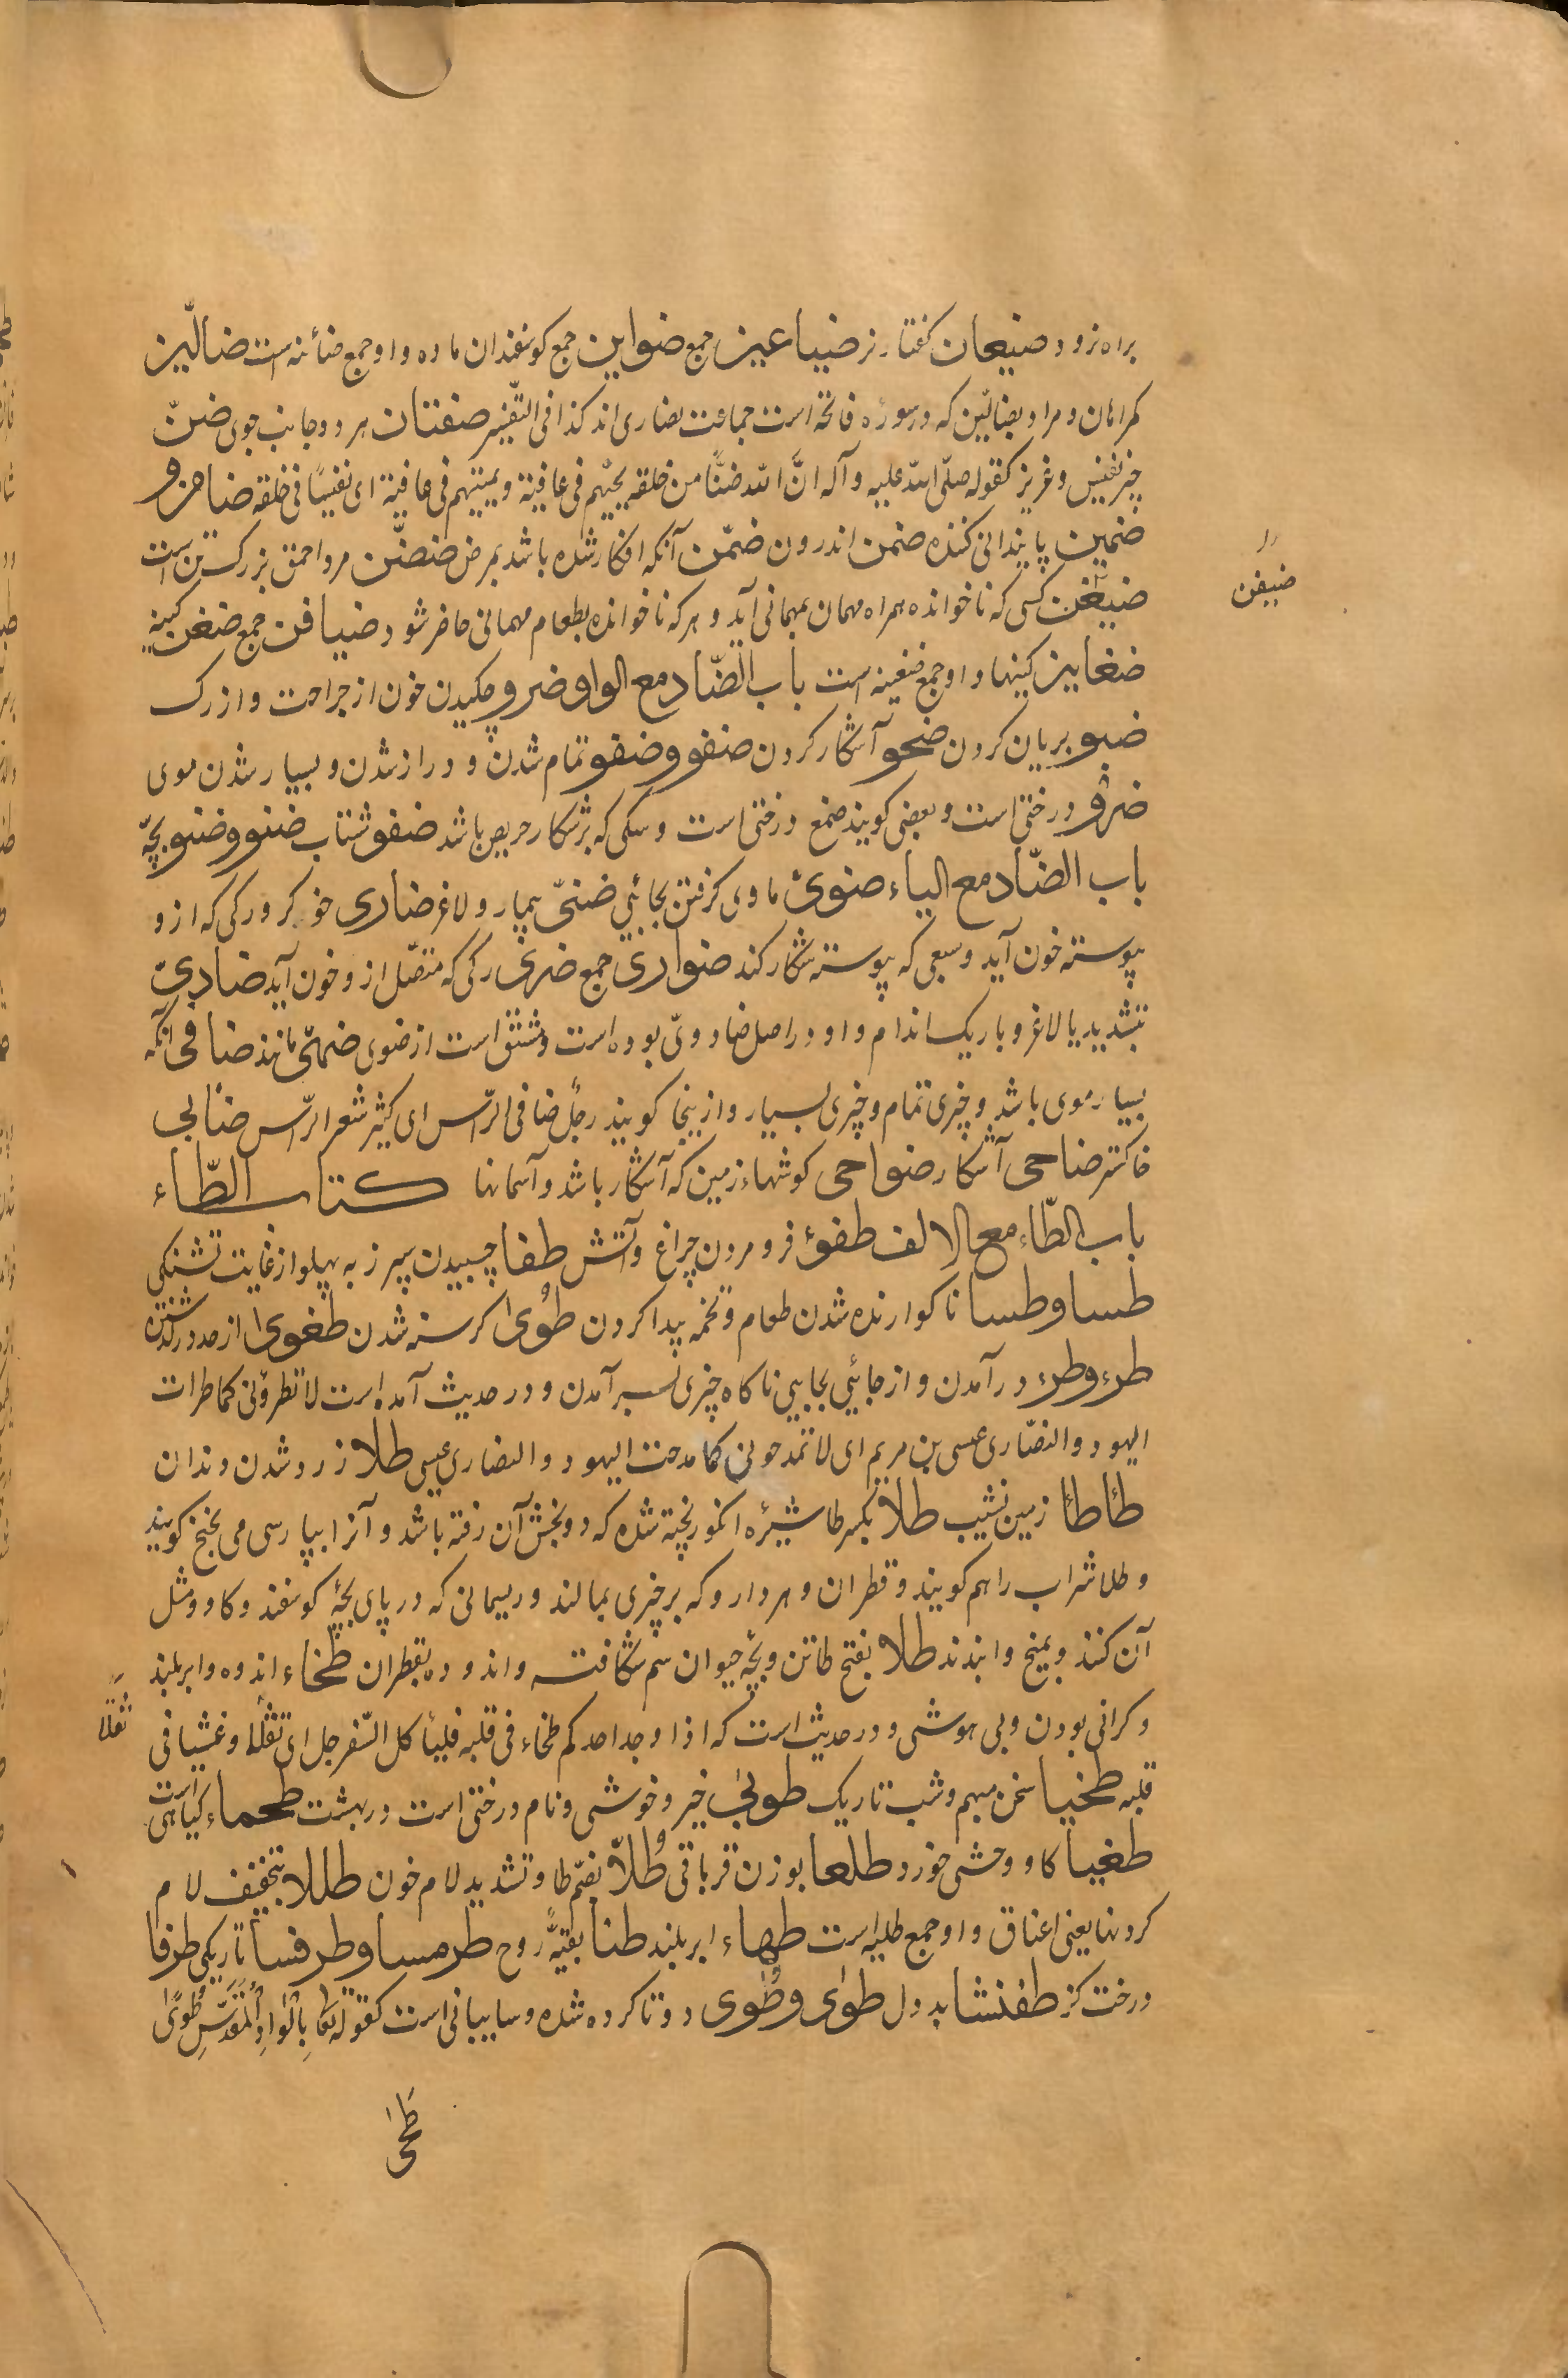 براه نرود ضبعان کفتار نر ضباعین جمع ضواین جمع کوسفندان ماده و او جمع ضائنه است ضالّین
کمراهان و مراد بضالّین که در سورهٔ فاتحه است جماعت نصاری اند کذا فی التّفسیر ضفتان هر دو جانب جوی ضنّ
چیز نفیس و عزیز کقوله صلّی الله علیه و آله انّ لله ضنًّا من خلقه یحییهم فی عافیة و یمیتهم فی عافیة ای نفیسًا فی خلقه ضامن و
ضمین پایندانی کننده ضمن اندرون ضمّن آنکه افکار شده باشد بمرض ضفنّن مرد احمق بزرک تن است
ضیفن کسی که ناخوانده همراه مهمان بمهمانی آید و هر که ناخوانده بطعام مهمانی حاضر شود ضیافن جمع ضغن کینه
ضیفن
ضغاین کینها و او جمع ضغینه است باب الضّاد مع الواو ضرو چکیدن خون از جراحت و از رک
ضبو بریان کردن ضحو آشکار کردن ضفو و ضفو تمام شدن و دراز شدن و بسیار شدن موی
ضرو درختی است و بعضی کویند صمغ درختی است و سکی که بر شکار حریص باشد ضفو شتاب ضنو و ضنو بچّه
باب الضّاد مع الیاء ضوی ماوی کرفتن بجائی ضنیّ بیمار و لاغر ضاری خوکر و رکی که ازو
پیوسته خون آید و سبعی که پیوسته شکار کند ضواری جمع ضری رکی که متصّل ازو خون آید ضادیّ
بتشدید یا لاغر و باریک اندام و او در اصل ضاوویّ بوده است و مشتق است از ضوی ضهیّ مانند ضافی آنکه
بسیار موی باشد و چیزی تمام و چیزی بسیار و از ینجا کویند رجلٌ ضافی الرّاس ای کثیر شعر الرّاس ضابی
خاکستر ضاحی آشکار ضواحی کوشهاء زمین که آشکار باشد و آسمانها کتاب الطّاء
باب الطّاء مع الالف طفوء فرو مردن چراغ و آتش طفا چسبیدن سپرز به پهلو از غایت تشنکی
طسا و طسا ناکوارنده شدن طعام و تخمه پیدا کردن طوٰی کرسنه شدن طغوی از حد در کذشتن
طرء و طرء درآمدن و از جائی بجائی ناکاه چیزی بسر آمدن و در حدیث آمده است لا تطرؤنی کما طرات
الیهود و النصّاری عیسی بن مریم ای لا تمدحونی کما مدحت الیهود و النصاری عیسی طلا زرد شدن دندان
طأطأ زمین نشیب طلا بکسر طا شیرهٔ انکور پخته شده که دو بخش آن رفته باشد و آنرا بپارسی می بختج کویند
و طلا شراب را هم کویند و قطران و هر دارو که بر چیزی بمالند و ریسمانی که در پای بچّهٔ کوسفند و کاو و مثل
آن کنند و بمیخ وا بندند طلا بفتح طا تن و بچّه حیوان سم شکافته و اندوده بقطران طخاء اندوه و ابر بلند
و کرانی بودن و بی هوشی و در حدیث است که اذا وجد احدکم طخاء فی قلبه فلیأکل السّفرجل ای ثقلًا و غشیا فی
ثقلًا
قلبه طخیا سخن مبهم و شب تاریک طوبی خیر و خوشی و نام درختی است در بهشت طحماء کیاهی است
طغیا کاو وحشی خورد طلعا بوزن قرباقی طُلّا بضمّ طا و تشدید لام خون طللا بتخفیف لام
کردنها یعنی اعناق و او جمع طلیه است طهاء ابر بلند طنا بقیّهٔ روح طرمسا و طرفسا تاریکی طرفا
درخت کز طفنشا بد دل طوٰی و طُوی دو تا کرده شده و سایبانی است کقوله تعا بِالْوادِ الْمُقَدَّسِ طُوًی
طحی